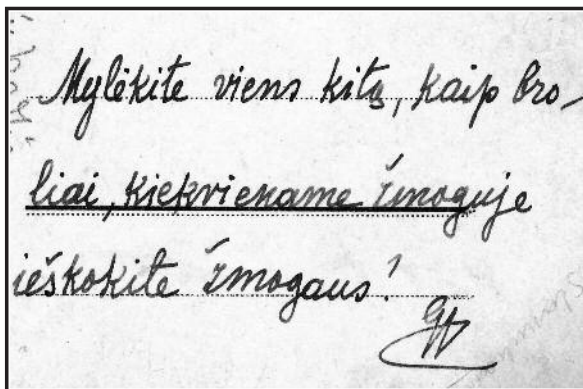 Mylėkite viens kitą, kaip bro-
liai, kiekviename žmoguje
ieškokite žmogaus!